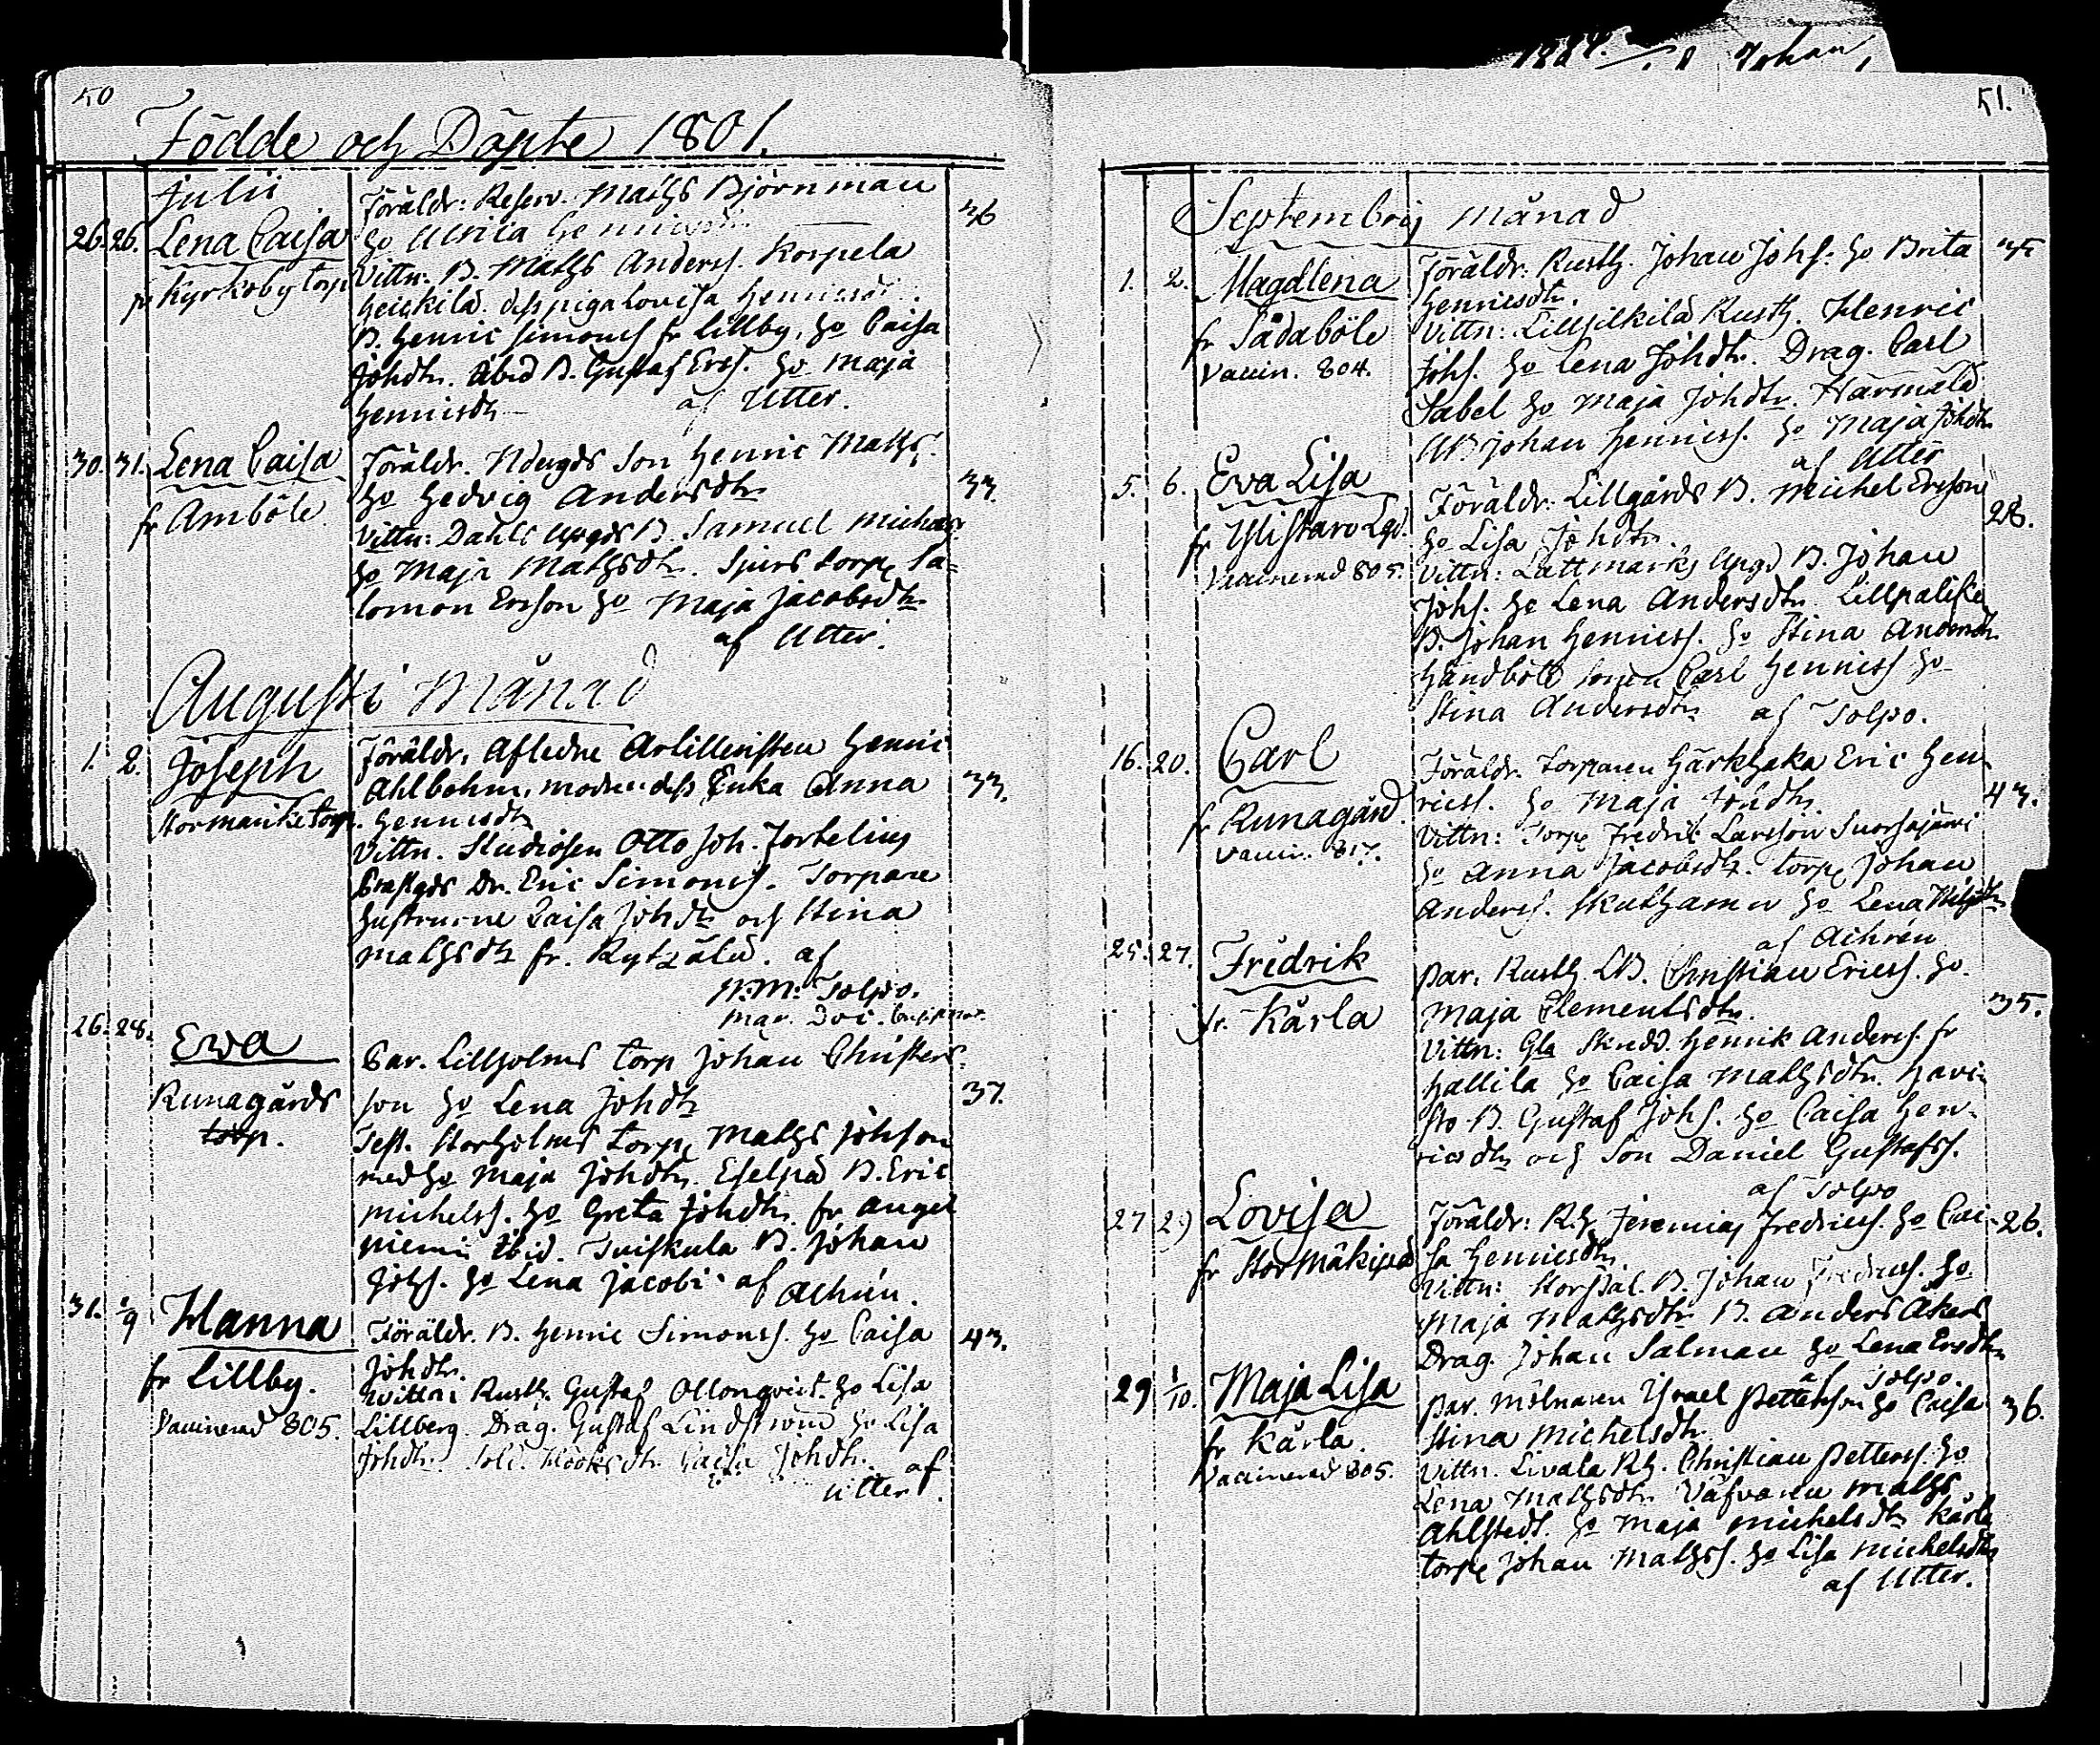 50
Födde och Döpte 1801.
Julii
26. 26. Lena Caisa
fr Kyrkoby torp
Föräldr: Reserv. Mathς Björnman
ho Ulrica Henricsdr
Vittn: B. Mathς Anderss. Korpela
Heickilä. dess piga Lovisa Henricsdr.
B. Henric Simonss fr Lillby, ho Caisa
Johdtr. Åbid B. Gustaf Ers. ho Maja
Henricsdtr af Utter.
36
30. 31. Lena Caisa
fr Amböle
Föräldr. Ndergds Son Henric Mathss.
ho Hedvig Andersdtr
Vittn: Dahls Upgds B. Samuel Michelss.
ho Maja Mathsdtr. Spirs torp. Sa=
lomon Ersson ho Maja Jacobsdtr
af Utter.
33.
Augusti Månad
1. 2. Joseph
Stormanike torp.
Föräldr. Aflidne Artilleristen Henric
Ahlbohm, modren dess Enka Anna
Henricsdtr
Vittn. Studiosen Otto Joh. Fortelius
Prestgds Dr. Eric Simonss. Torpare
hustrurne Caisa Johdtr och Stina
Mathsdtr fr. Rytzälä. af
N: M: Tolpo.
33.
26. 28. Ewa
Runagårds
torp.
Par. Lillholms torp Johan Christers=
son ho Lena Johdtr
Test. Storholms torp. Mathς Johsson
med ho Maja Johdtr. Eselpä B. Eric
Michelss. ho Greta Johdtr fr Angel
niemi ibid. Tuiskula B. Johan
Johs. ho Lena Jacobi. af Achrén.
37.
31. 1/9 Hanna
fr Lillby.
Vaccinerad 805.
Föräldr. B. Henric Simonss. ho Caisa
Johdtr.
Vittn: Rusth. Gustaf Ollonqvist. ho Lisa
Lillberg. Drag. Gustaf Lindström ho Lisa
Johdtr. Sold. Hööks dtr. Caisa Johdtr. af
Utter.
43.
51.
Septembris månad
1. 2. Magdlena
fr Sådaböle
Vaccin. 804.
Föräldr: Rusth. Johan Johs: ho Brita
Henricsdtr.
Vittn: Lillsilkilä Rusth. Henric
Johs. ho Lena Johdtr. Drag. Carl
Sabel ho Maja Johdtr. Härmälä
UB Johan Henricss. ho Maja Johdtr
af Utter
5. 6. Eva Lisa
fr Ylistaro Lgd.
Vaccinerad 805.
Föräldr: Lillgårds B. Michel Ersson
ho Lisa Johdtr.
Vittn: Lättmarks Upgd B. Johan
Johs. ho Lena Andersdtr. Lillpaliske
B. Johan Henricss. ho Stina Andersdtr
Handböle sonen Carl Henricss ho
Stina Andersdtr af Tolpo.
28.
16. 20. Carl
fr Runagård.
Vaccin. 817.
Föräldr. Torparen Härkhaka Eric Hen
ricss. ho Maja Johdtr.
Vittn: Torp. Fredric Larsson Suorsajärvi
ho Anna Jacobsdtr. torp. Johan
Anderss. Skuthamn ho Lena
af Achrén
43.
25. 27. Fredrik
fr. Kärla
Par. Rusth. LB. Christian Ericss. ho
Maja Clementsdtr.
Vittn: Gla Skredd. Henrik Anderss. fr
Hallila ho Caisa Mathsdtr. Havi=
sto B. Gustaf Johs. ho Caisa Hen=
ricsdtr och Son Daniel Gustafss.
af Tolpo
35.
27 29 Lovisa
fr Stor Mäkipää
Föräldr: R.h. Jeremias Fredricss. ho Cai-
sa Henricsdtr.
Vittn: Storpal. B. Johan Fredricss. ho
Maja Mathsdtr. B. Anders Åkerl
Drag. Johan Salman ho Lena Ersdtr
af Tolpo.
26.
29 1/10. Maja Lisa
fr Kärla.
Vaccinerad 805.
Par. Mölnaren Israel Petterson ho Caisa
Stina Michelsdtr
Vittn. Livala Rh. Christian Petterss. ho
Lena Mathsdtr. Väfvaren Mathς
Ahlstedt. ho Maja Michelsdtr Kärla
torp. Johan Mathss. ho Lisa Michelsdtr
af Utter.
36.